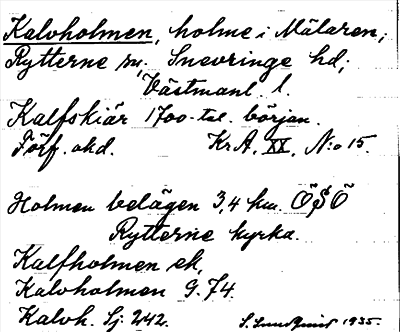 Kalvholmen, holme i Mälaren;
Rytterne sn, Snevringe hd;
Västmanl. l.
Kalfskiär 1700-tal. början.
Förf. okd. KrA. XX, N:o 15.
Holmen belägen 3,4 km. ÖSÖ
Rytterne kyrka.
Kalfholmen ek,
Kalvholmen G. 74.
Kalvh. Sj: 242. S. Lundquist 1935.